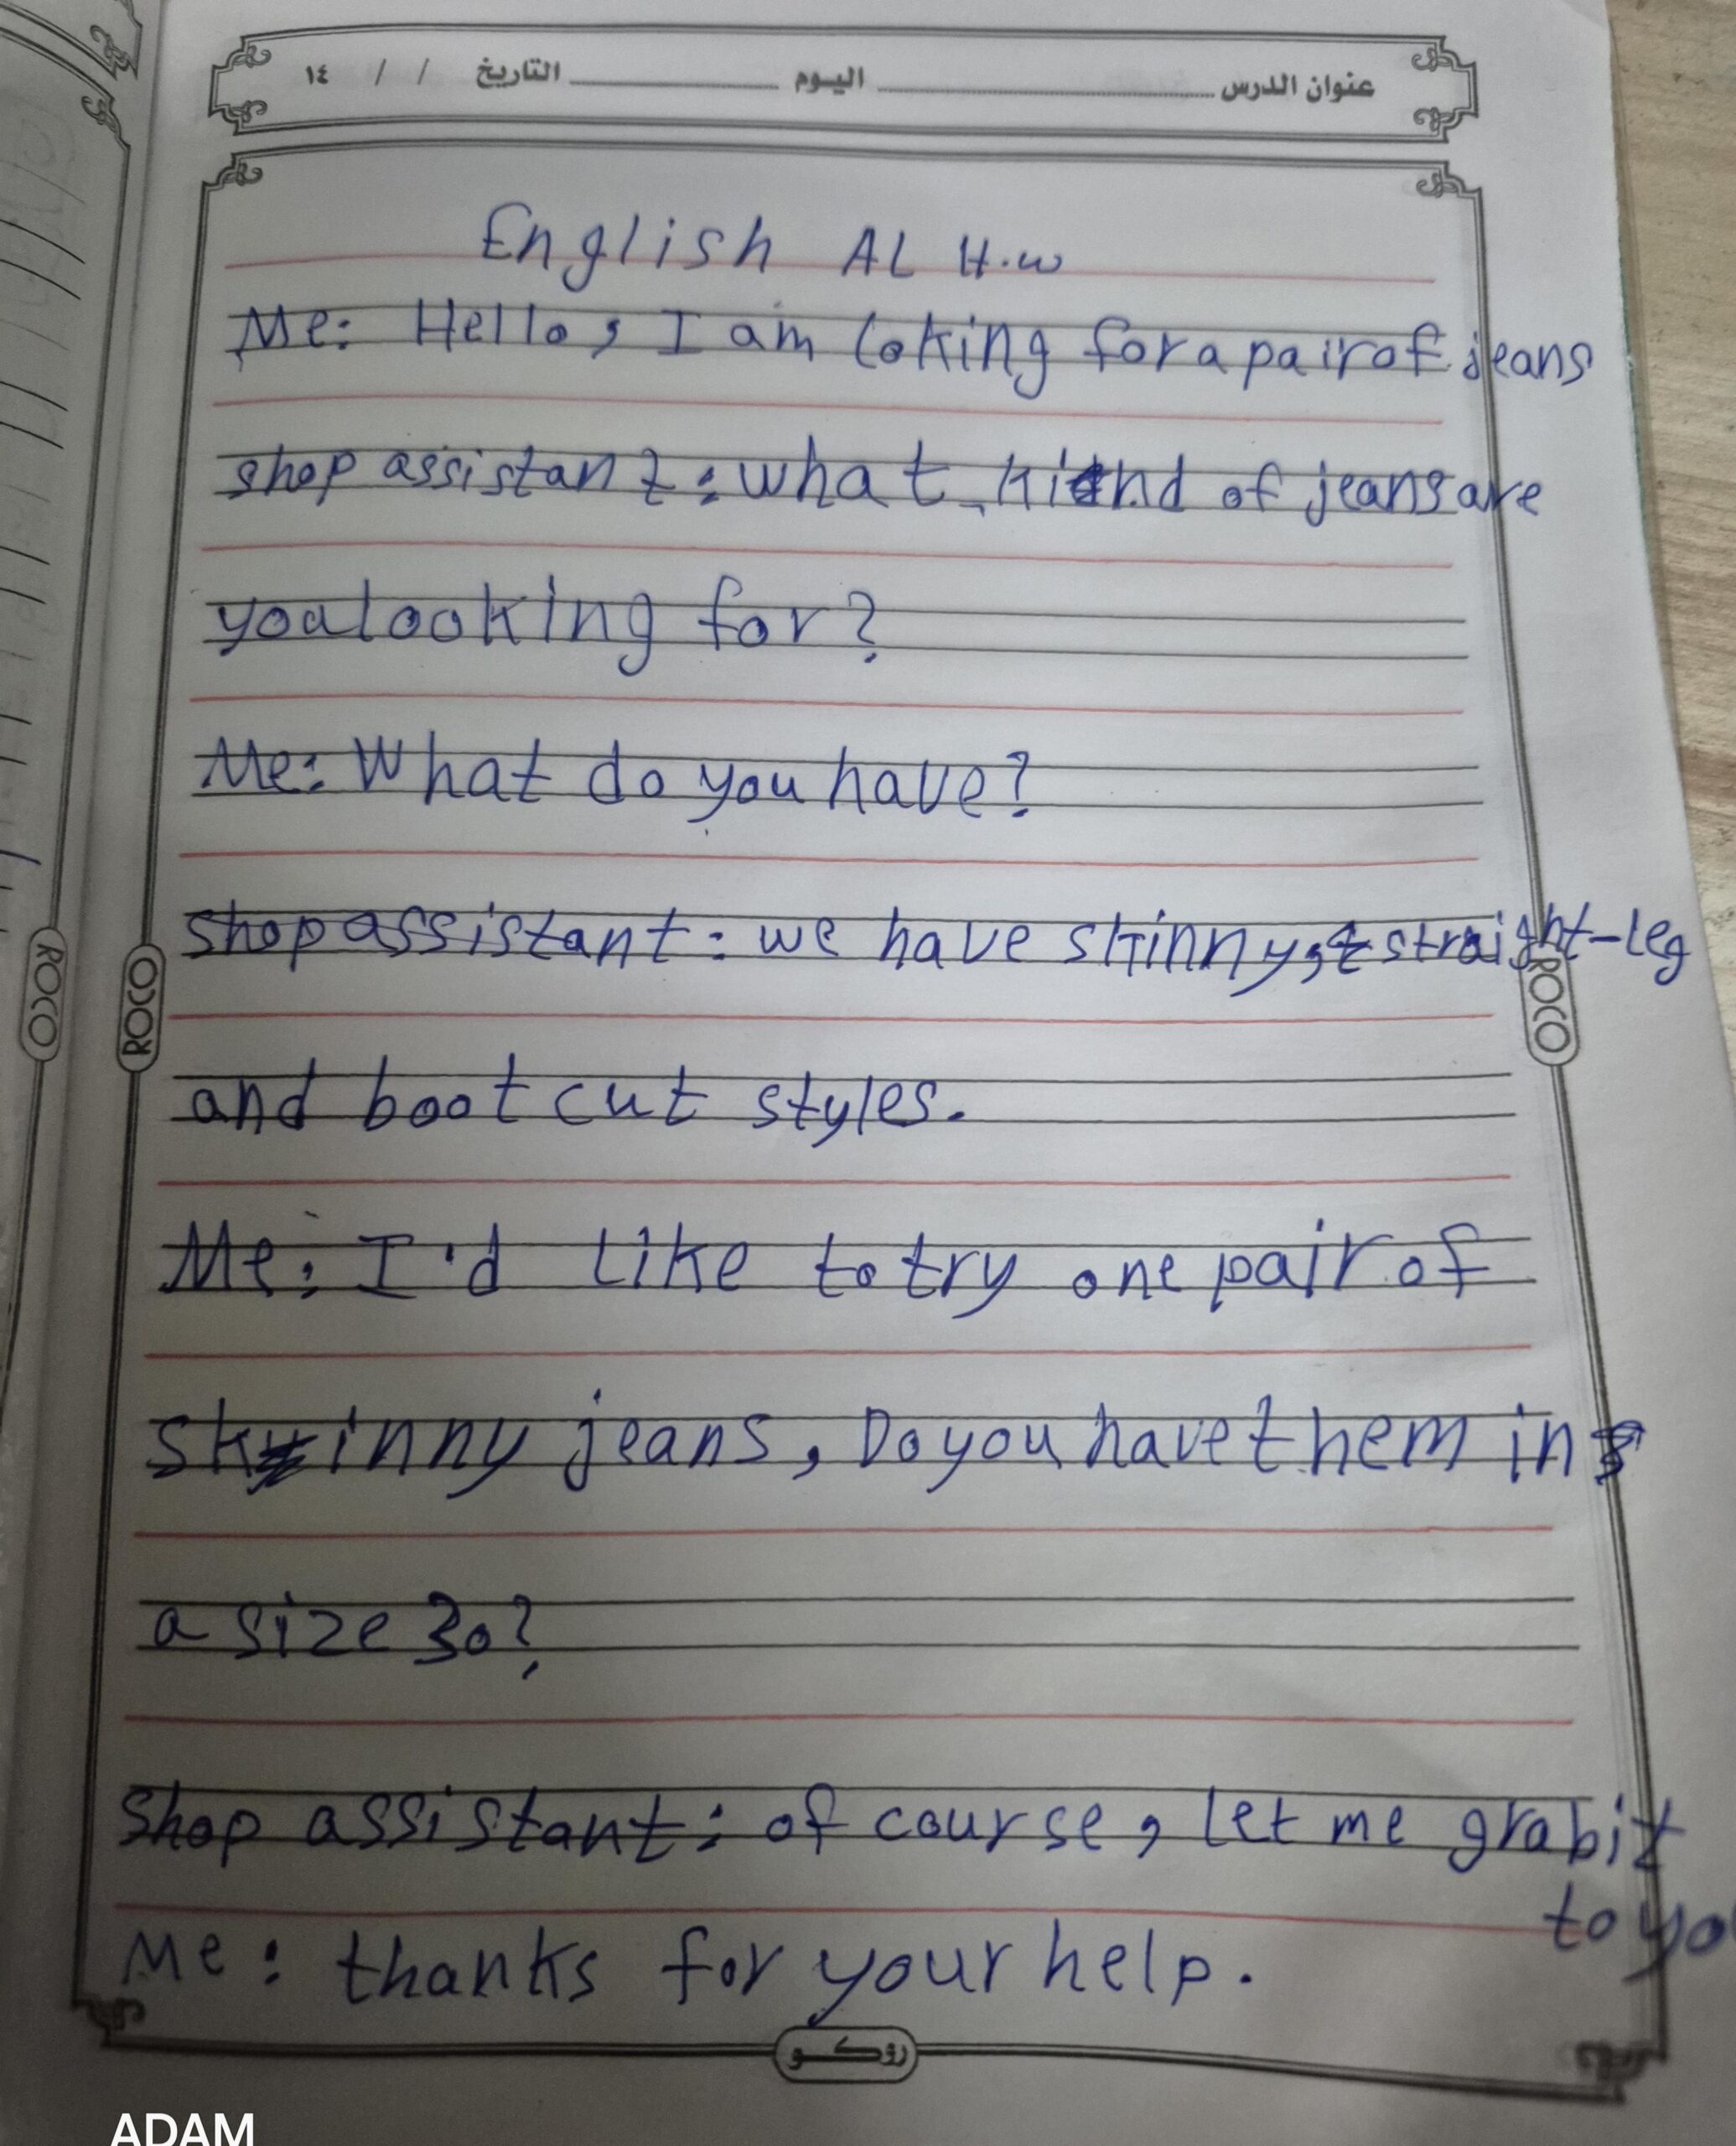 عنوان الدرس اليوم التاريخ / / ١٤
English AL H.w
Me: Hello, I am loking for a pair of jeans
shop assistant: what kind of jeans are
you looking for?
Me: What do you have?
shop assistant: we have skinny, straight-leg
and boot cut styles.
Me: I'd like to try one pair of
skinny jeans, Do you have them in
a size 30?
Shop assistant: of course, let me grab it
to yo
Me: thanks for your help.
ROCO
ROCO
ROCO
روكو
ADAM